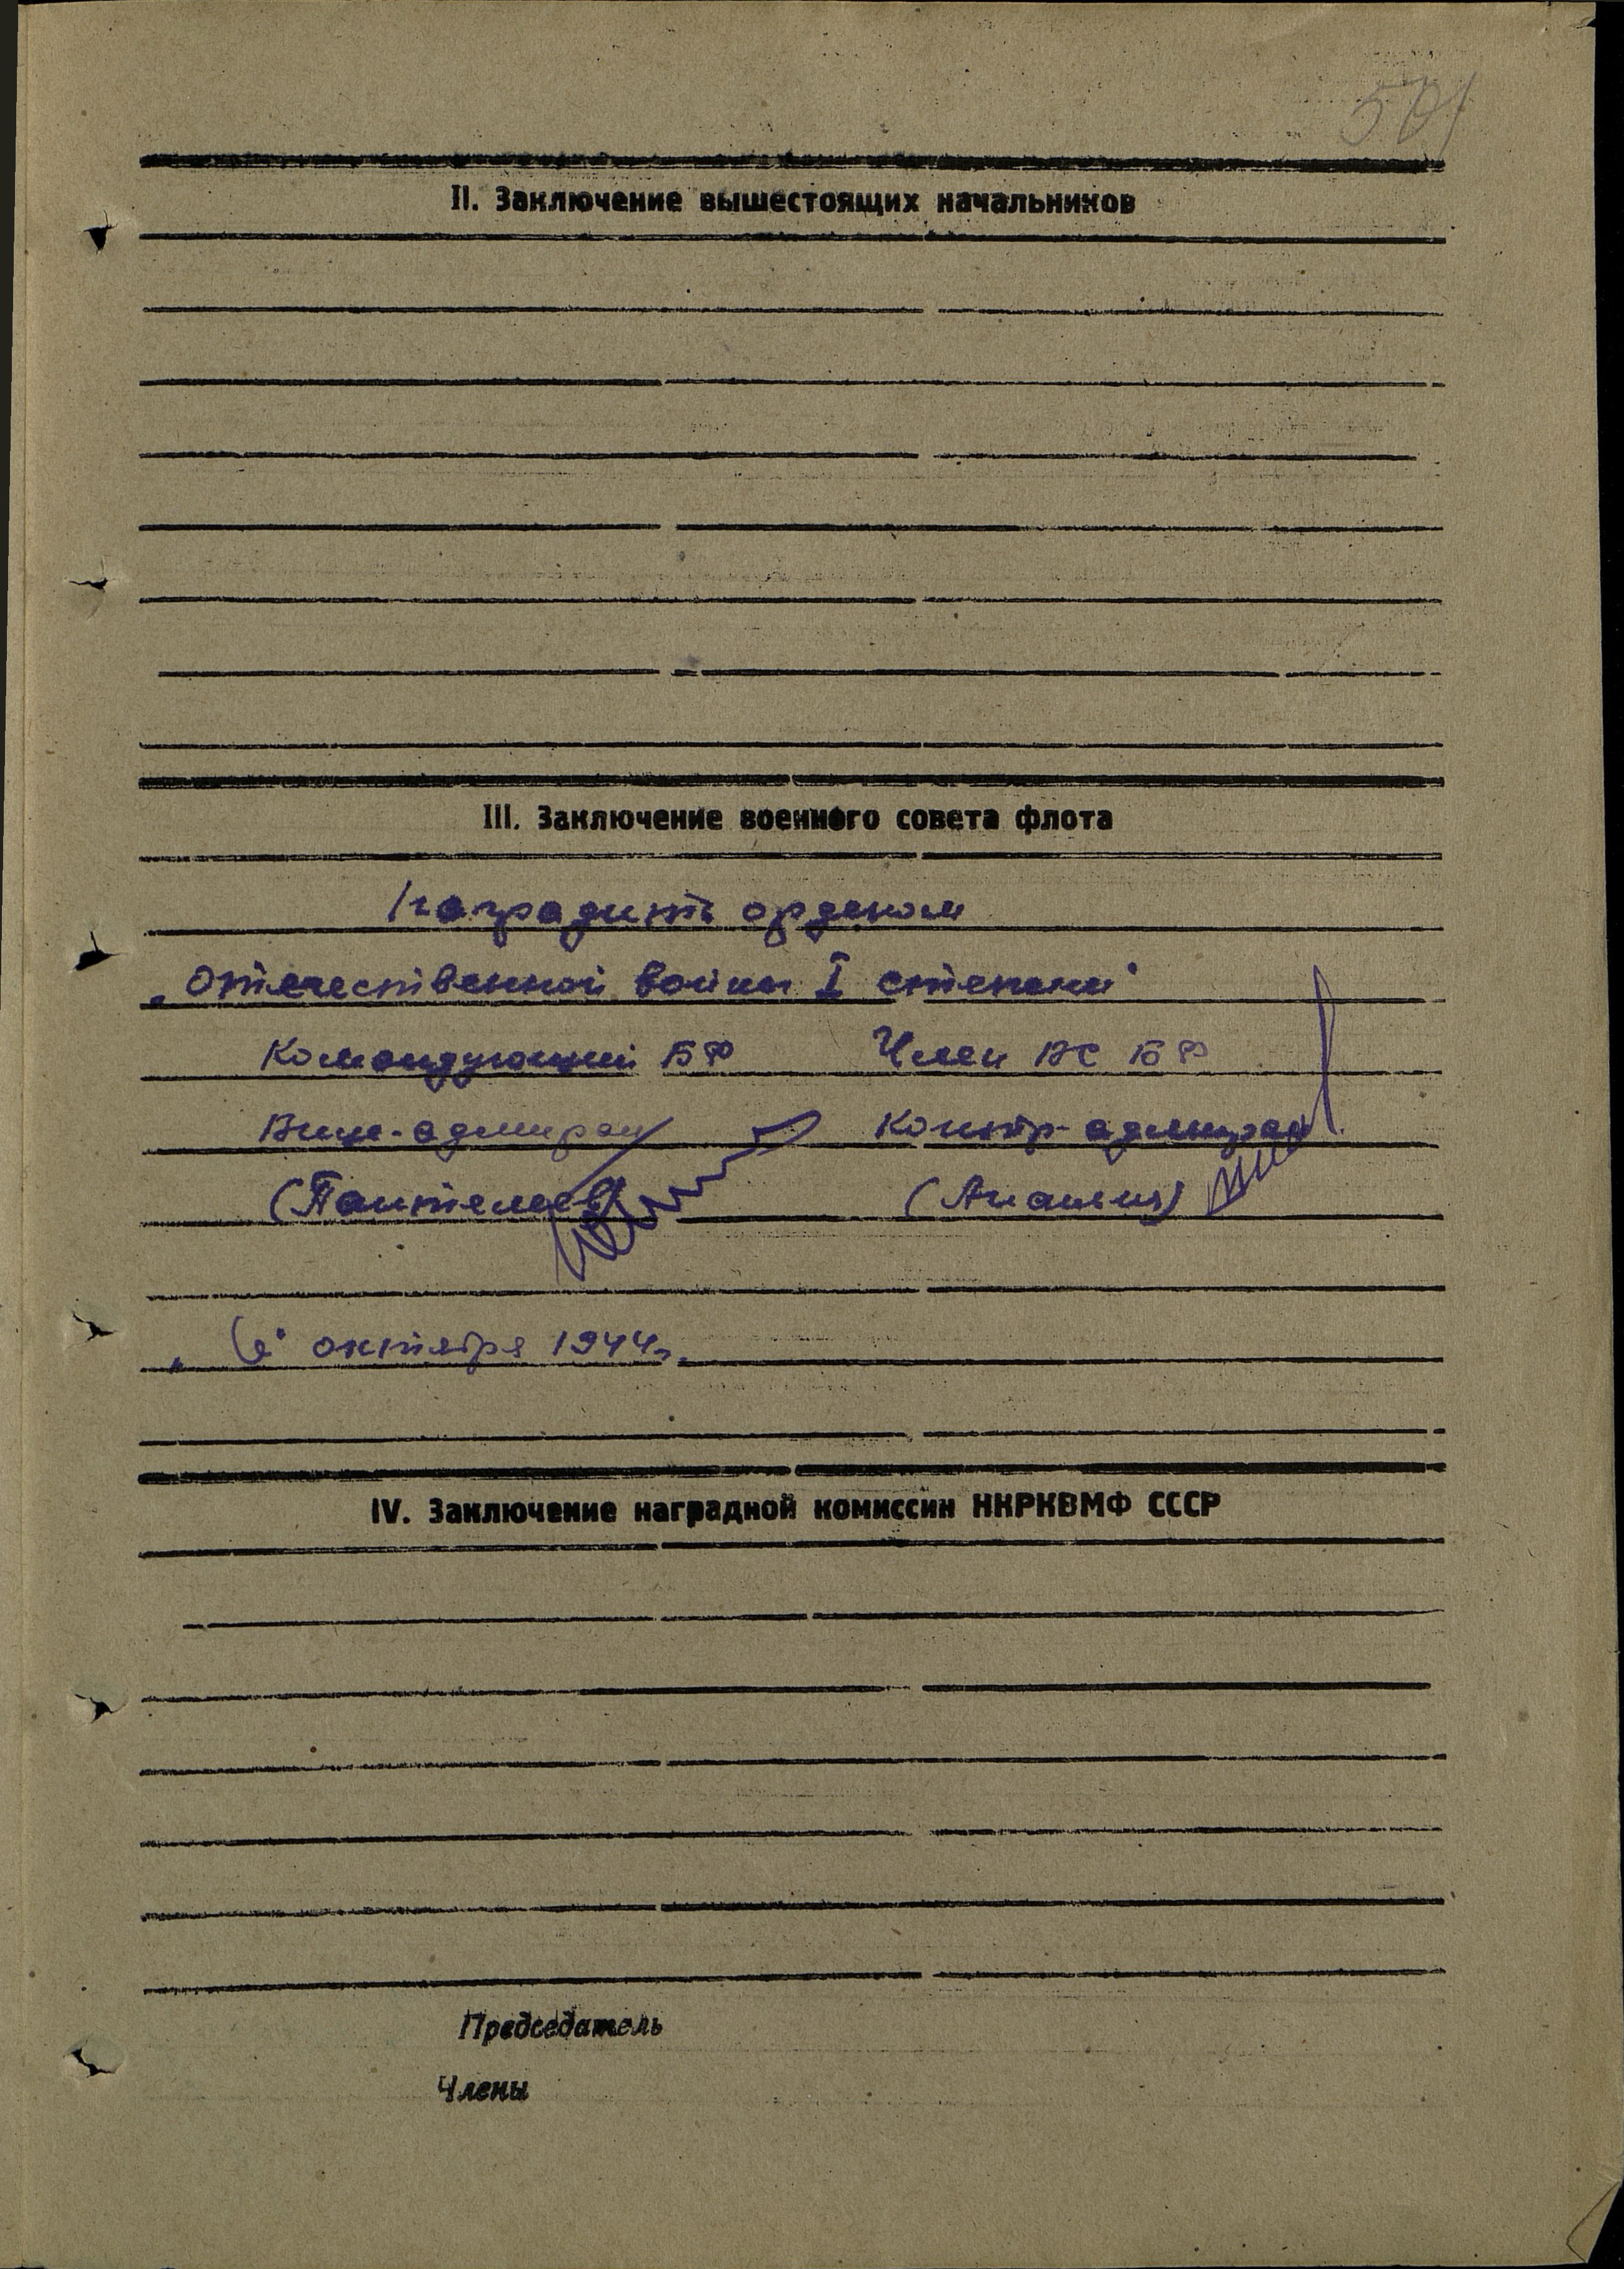 II. Заключение вышестоящих начальников
III. Заключение военного совета флота
Наградить орденом
„Отечественной войны I степени"
Командующий БФ Член ВС БФ
Вице-адмирал Контр-адмирал
(Пантелеев)
„6" октября 1944г.
IV. Заключение наградной комиссии НКРКВМФ СССР
Председатель
Члены